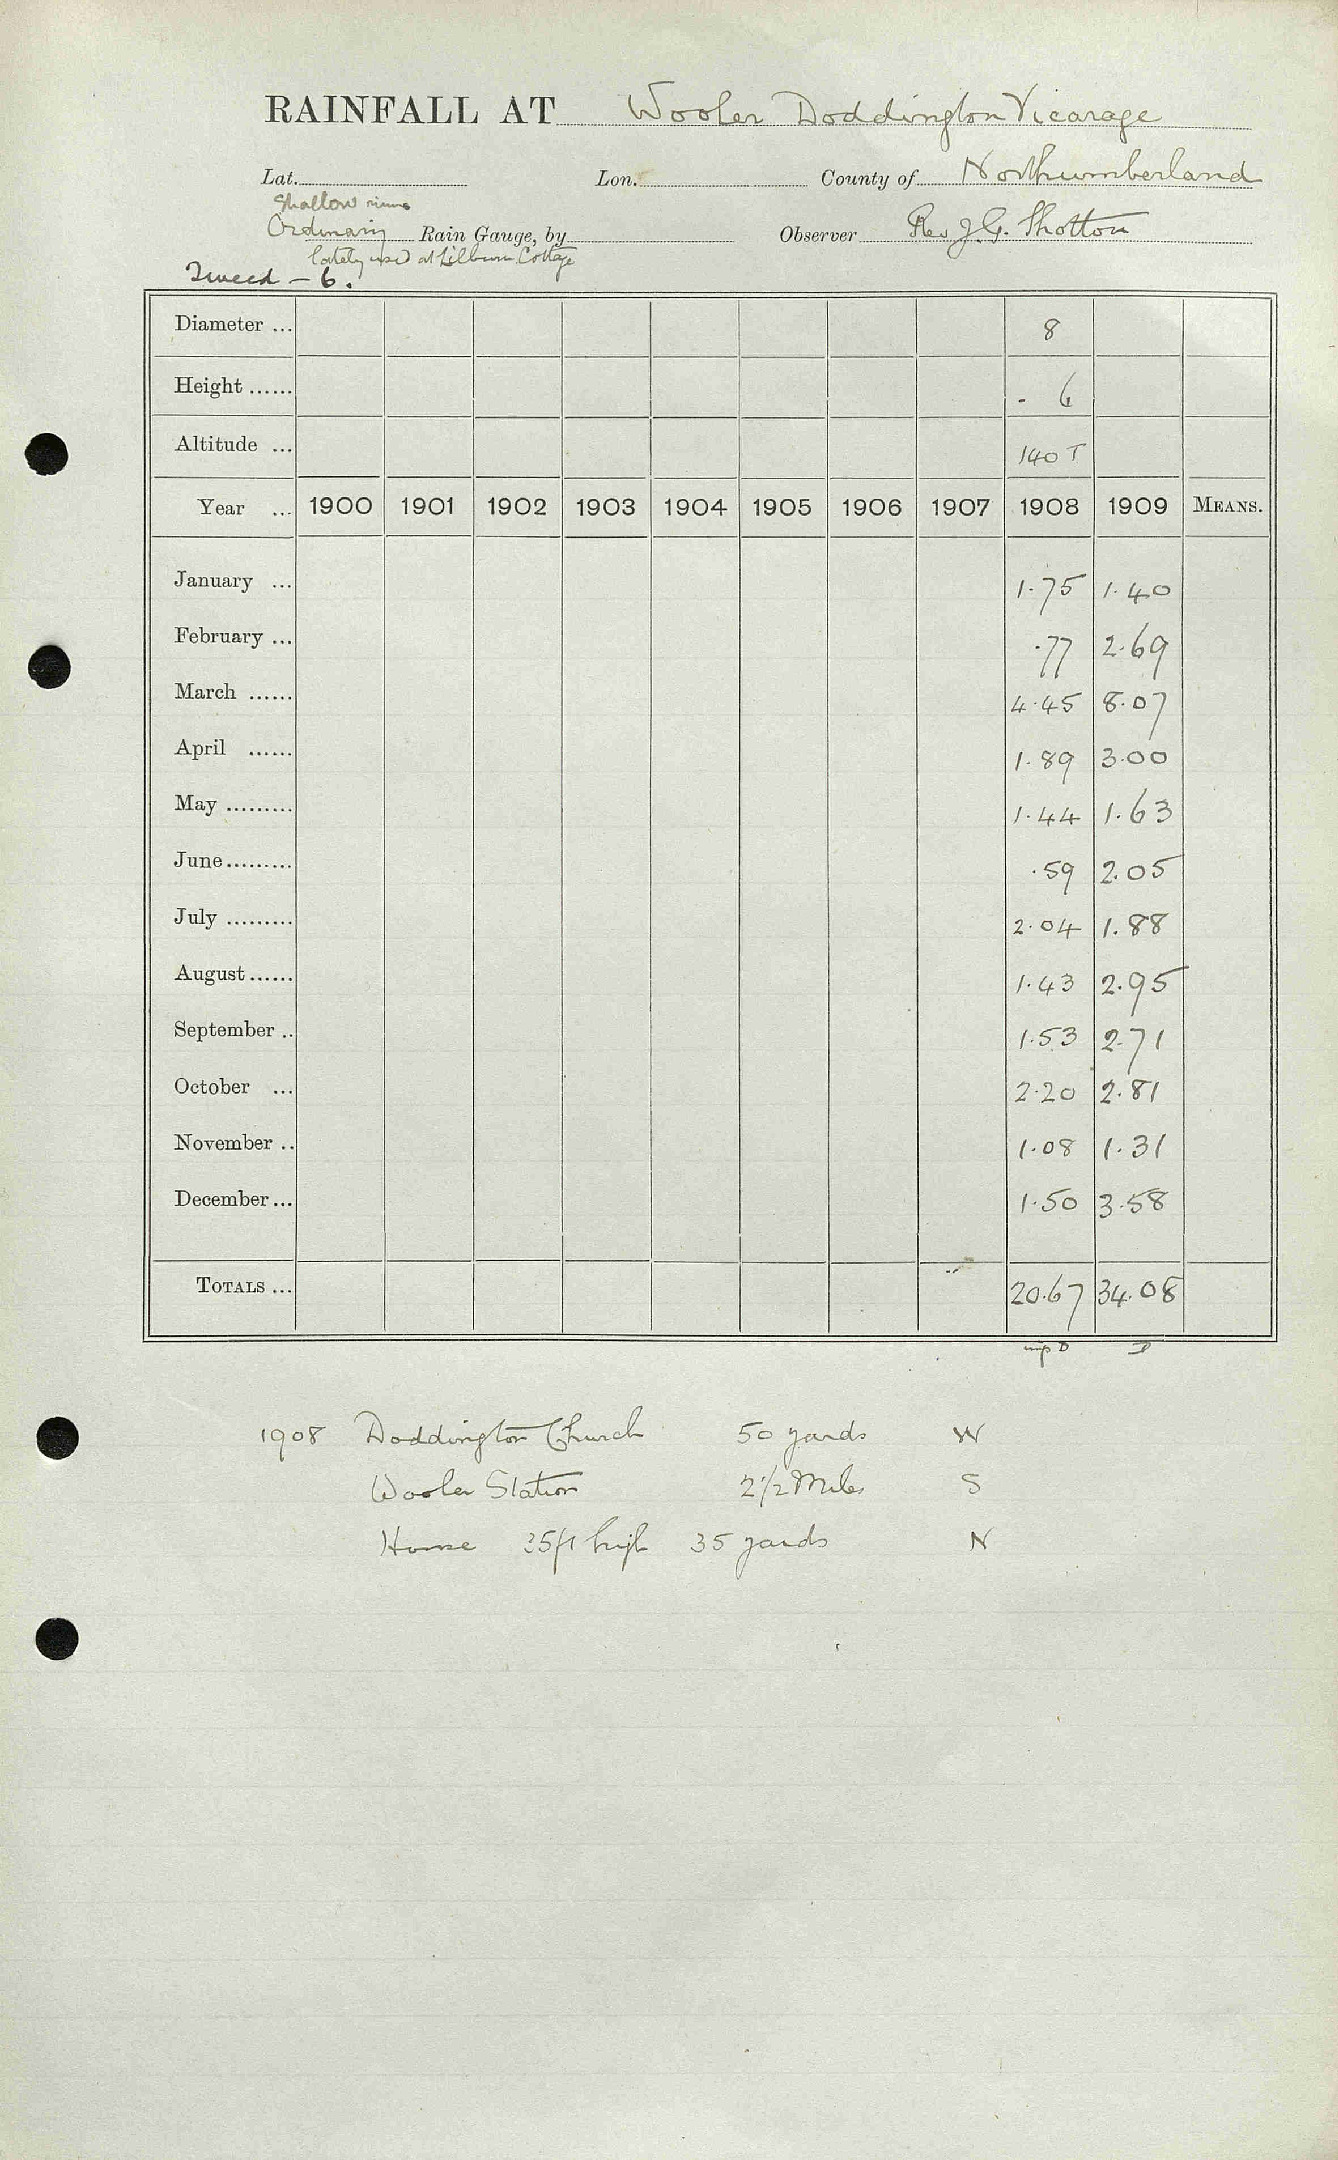 RAINFALL AT Wooler Doddington Vicarage
Lat. Lon. County of Northumberland
Shallow rims
Ordinary Rain Gauge, by Observer Rev J. G. Shotton
lately used at Lilburn Cottage
Tweed - 6.
Diameter ... 8
Height ...... - 6
Altitude ... 140 T
Year ... 1900 1901 1902 1903 1904 1905 1906 1907 1908 1909 MEANS.
January ... 1.75 1.40
February ... .77 2.69
March ...... 4.45 8.07
April ...... 1.89 3.00
May ......... 1.44 1.63
June ......... .59 2.05
July ......... 2.04 1.88
August ...... 1.43 2.95
September .. 1.53 2.71
October ... 2.20 2.81
November .. 1.08 1.31
December ... 1.50 3.58
TOTALS ... 20.67 34.08
D
1908 Doddington Church 50 yards W
Wooler Station 2 1/2 Miles S
House 35ft high 35 yards N